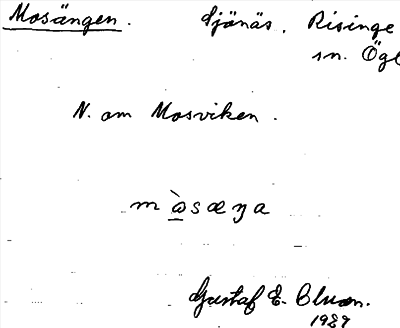 Mosängen. Sjönäs. Risinge
sn. Ög
N. om Mosviken.
mὼsæŋa
Gustaf E. Blum.
1929